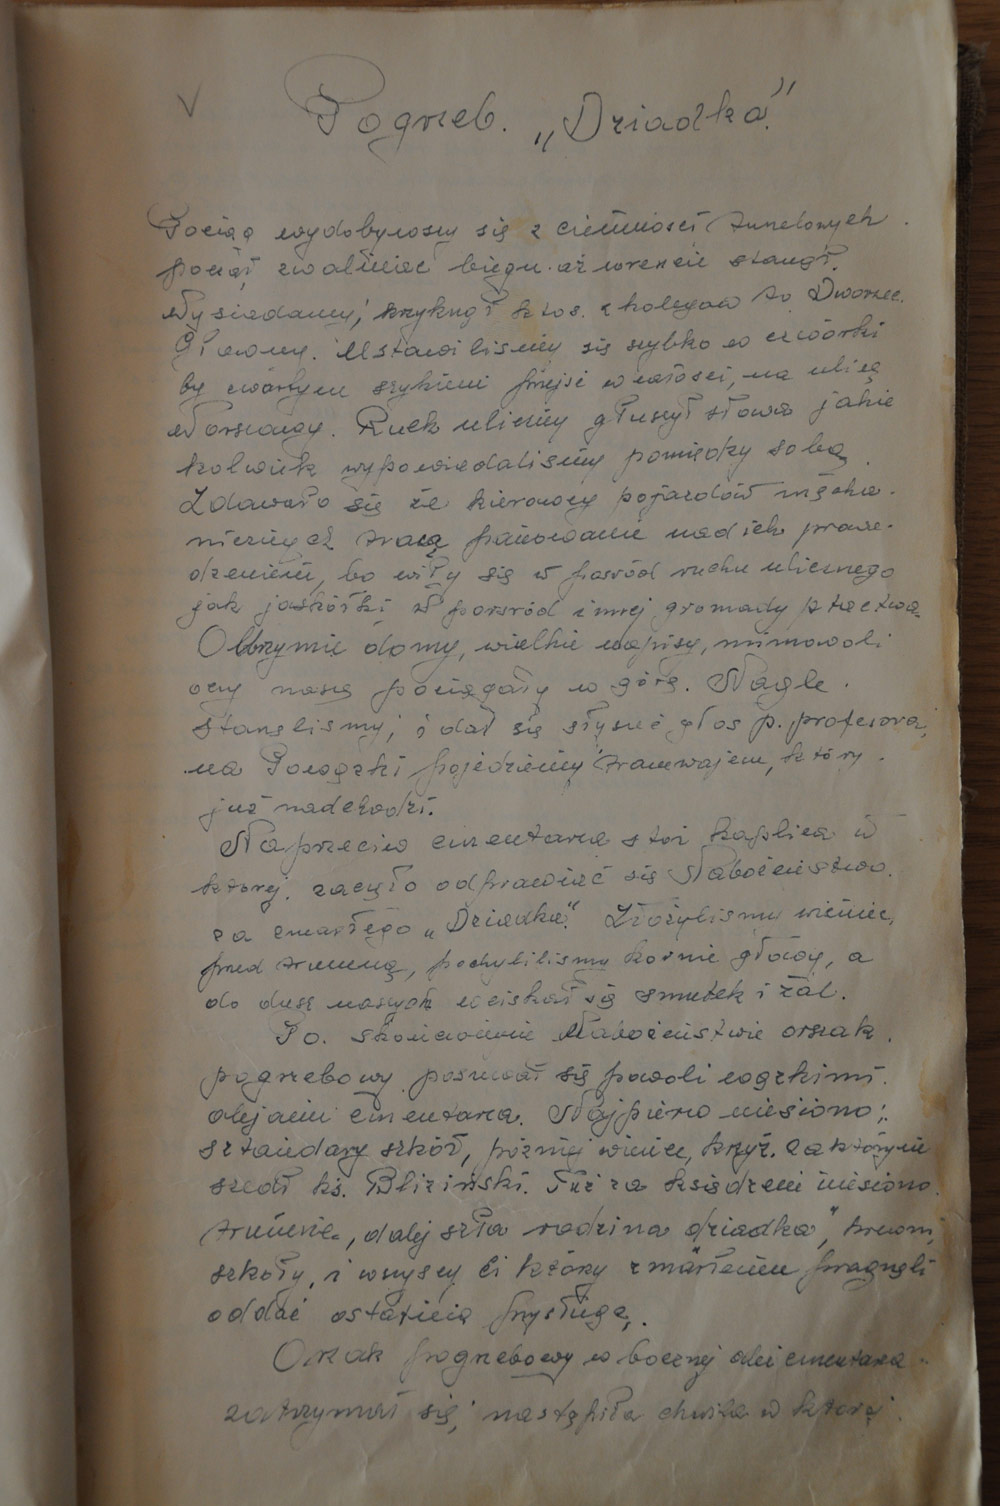 Pogrzeb. „Dziadka."
Pociąg wydobywszy się z ciemności tunelowych.
począł zwalniać biegu aż wreszcie stanął.
Wysiadamy, krzyknął ktoś. z kolegów to Dworzec.
Główny. Ustawiliśmy się szybko w czwórki
by zwartym szykiem przejść w całości, na ulicę
Warszawy. Ruch uliczny głuszył słowa jakie
kolwiek wypowiedaliśmy pomiędzy sobą.
Zdawało się że kierowcy pojazdów mecha-
nicznych tracą panowanie nad ich prowa-
dzeniem, bo wiły się w pośród ruchu ulicznego
jak jaskółki w pośród innej gromady ptactwa.
Olbrzymie domy, wielkie napisy, mimowoli
oczy nasze pociągały w górę. Nagle.
stanęliśmy, i dał się słyszeć głos p. profesora,
na Powązki pojedziemy tramwajem, który.
już nadchodzi.
Naprzeciw cmentarza stoi kaplica w
której. zaczęło odprawiać się Nabożeństwo.
za zmarłego „Dziadka". Złożyliśmy wieniec,
przed trumną, pochyliliśmy kornie głowy, a
do dusz naszych wciskał się smutek i żal.
Po. skończonem Nabożeństwie orszak.
pogrzebowy posuwał się powoli wązkimi.
alejami cmentarza. Najpierw niesiono;
sztandary szkół, później wieńce, krzyż. za którym
szedł ks. Bliziński. Tuż za księdzem niesiono.
trumnę, dalej szła rodzina dziadka", krewni,
szkoły, i wszyscy Ci którzy zmarłemu pragnęli
oddać ostatnią przysługę.
Orszak pogrzebowy w bocznej alei cmentarza.
zatrzymał się, nastąpiła chwila w której